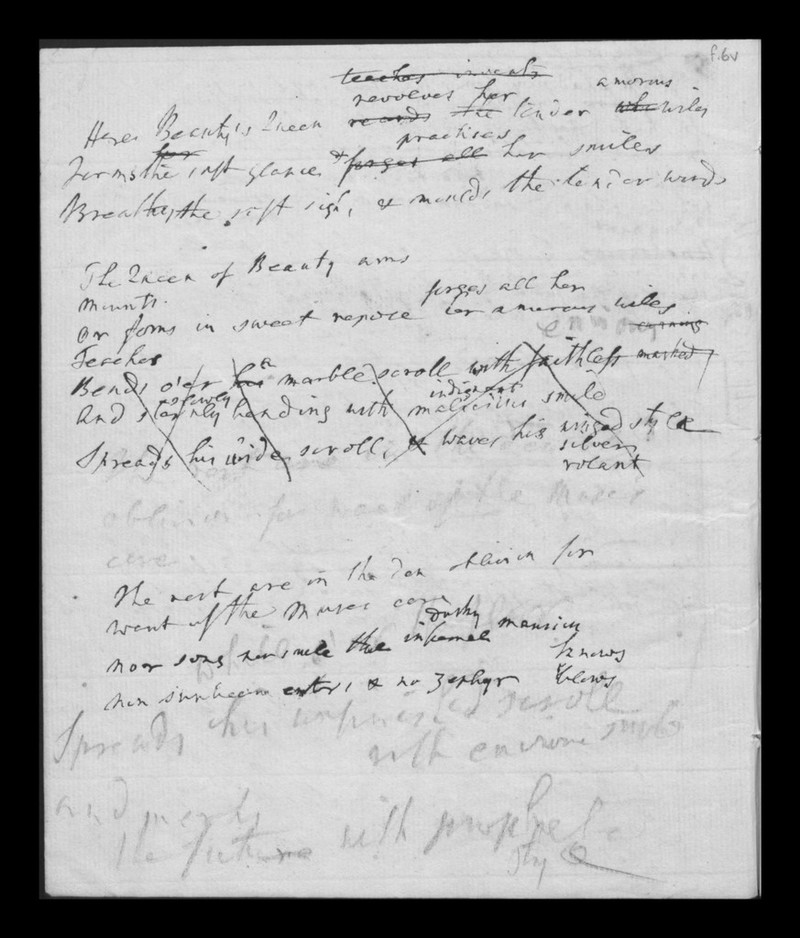 f.6v
teaches invents
revolves her amorous
Here Beauty's Queen records the tender wily
practises
her
Forms the soft glance & forges all her smiles
Breathes the soft sigh, & moulds the tender words
The Queen of Beauty arms
mounts.
forges all her
or forms in sweet repose her amorous wiles
cunning
Teaches
Bends o'er his a marble scroll with faithless marked
slowly indignant
And sternly bending with malicious smile
Spreads his wide scroll, & waves his winged style
silver
volant
oblivion for want of the Muses
care
The rest are in the den oblivion for
want of the Muses care
dusky
nor song nor smile the infernal mansion knows
nor sunbeam enters, & no Zephyr blows
Spreads his unfinished scroll
with smile
and marks
the future with prophetic
style